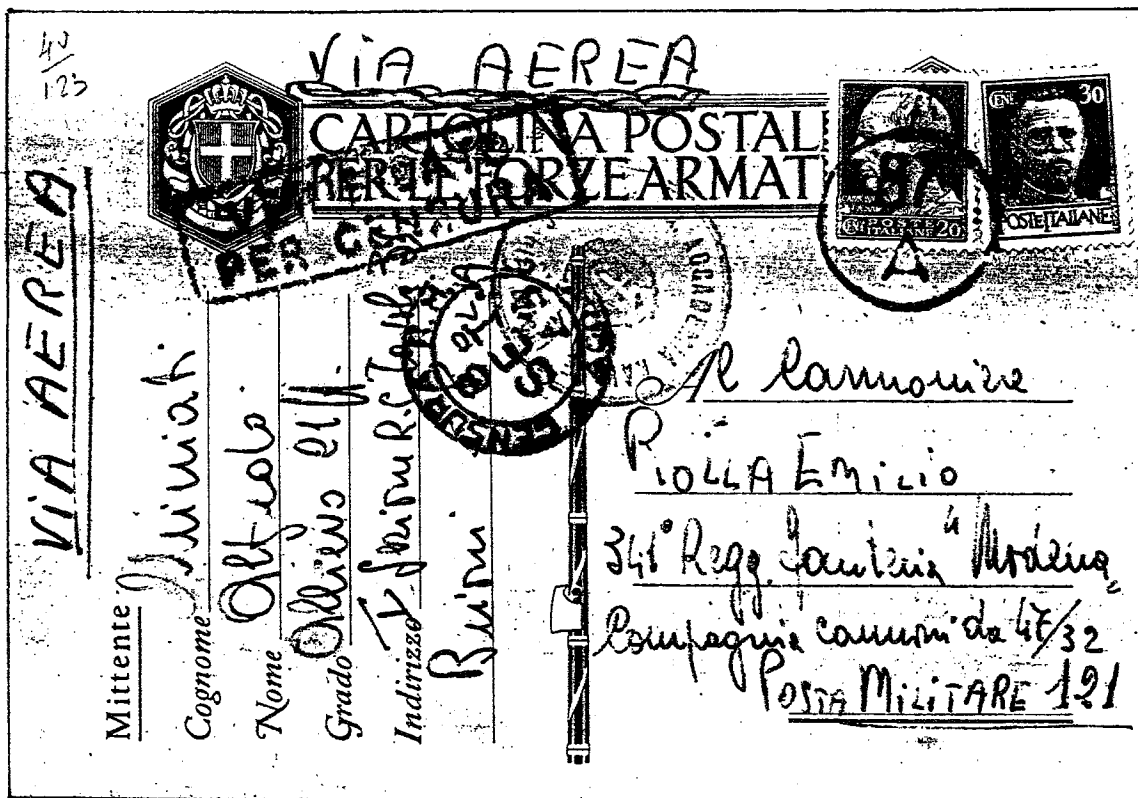 40
123
VIA AEREA
CARTOLINA POSTAL
PER LE FORZE ARMAT
CENT. 20
CENT 30
POSTE ITALIANE
PER CENSURA
97
A
CENSURA
VIA AEREA
Mittente
Cognome
Nome Alfredo
Grado Allievo Uff.
Indirizzo
Rimini
Al Cannoniere
PIOLLA EMILIO
341° Regg. Fanteria "Modena"
Compagnia cannoni da 47/32
POSTA MILITARE 121